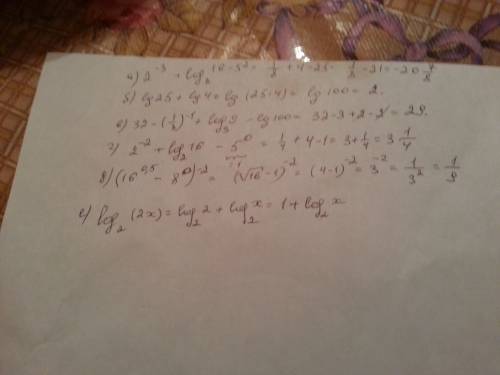 а) 2^{-3} + log_2 16 - 5^2 = 1/8 + 4 - 25 = 1/8 - 21 = -20 7/8
б) lg 25 + lg 4 = lg (25·4) = lg 100 = 2.
в) 32 - (1/3)^{-1} + log_3 9 - lg 100 = 32 - 3 + 2 - 2 = 29.
г) 2^{-2} + log_2 16 - 5^0 = 1/4 + 4 - 1 = 3 + 1/4 = 3 1/4
д) (16^{0,5} - 8^0)^{-2} = (√16 - 1)^{-2} = (4-1)^{-2} = 3^{-2} = 1/3^2 = 1/9
е) log_2 (2x) = log_2 2 + log_2 x = 1 + log_2 x